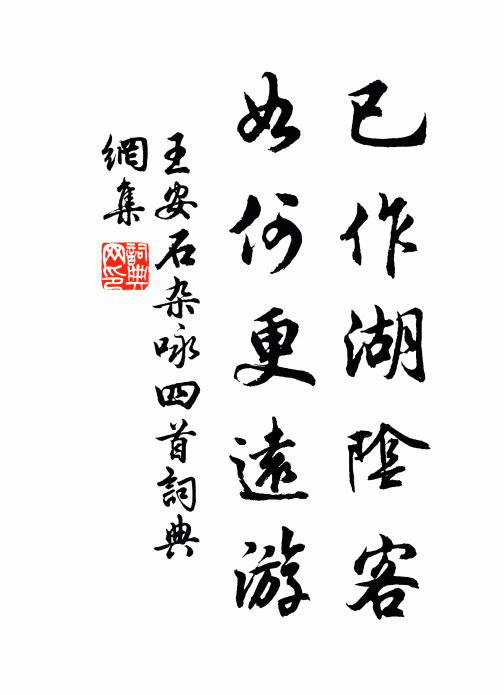 已作湖陰客
如何更遠游
王安石杂咏四首詞典
網集
詞典
网印